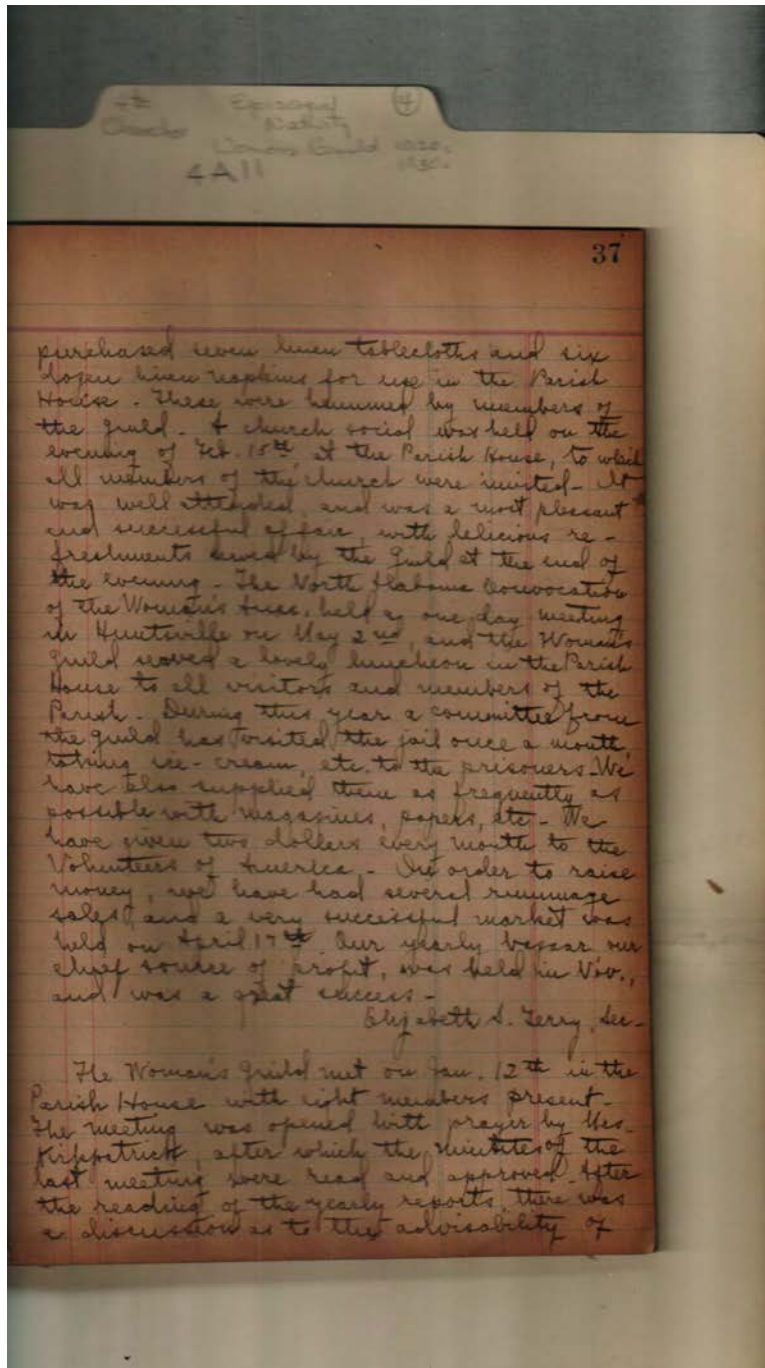 4th Episcopal (4)
Nativity
Womens Guild 1920s
1930s
4A11
37
purchased seven linen tablecloths and six
dozen linen napkins for use in the Parish
House. These were hemmed by members of
the guild. A church social was held on the
evening of Feb. 15th at the Parish House, to which
all members of the church were invited - It
was well attended, and was a most pleasant
and successful affair, with delicious re-
freshments served by the Guild at the end of
the evening - The North Alabama Convocation
of the Woman's Aux. held a one day meeting
in Huntsville on May 2nd, and the Woman's
Guild served a lovely luncheon in the Parish
House to all visitors and members of the
Parish - During this year a committee from
the guild has visited the jail once a month,
taking ice-cream, etc. to the prisoners - We
have also supplied them as frequently as
possible with magazines, papers, etc - We
have given two dollars every month to the
Volunteers of America - In order to raise
money, we have had several rummage
sales, and a very successful market was
held on April 17th. Our yearly bazaar our
chief source of profit, was held in Nov.,
and was a great success -
Elizabeth S. Terry, Sec -
The Woman's Guild met on Jan. 12th in the
Parish House with eight members present -
The meeting was opened with prayer by Mrs.
Kirkpatrick, after which the minutes of the
last meeting were read and approved. After
the reading of the yearly reports, there was
a discussion as to the advisability of